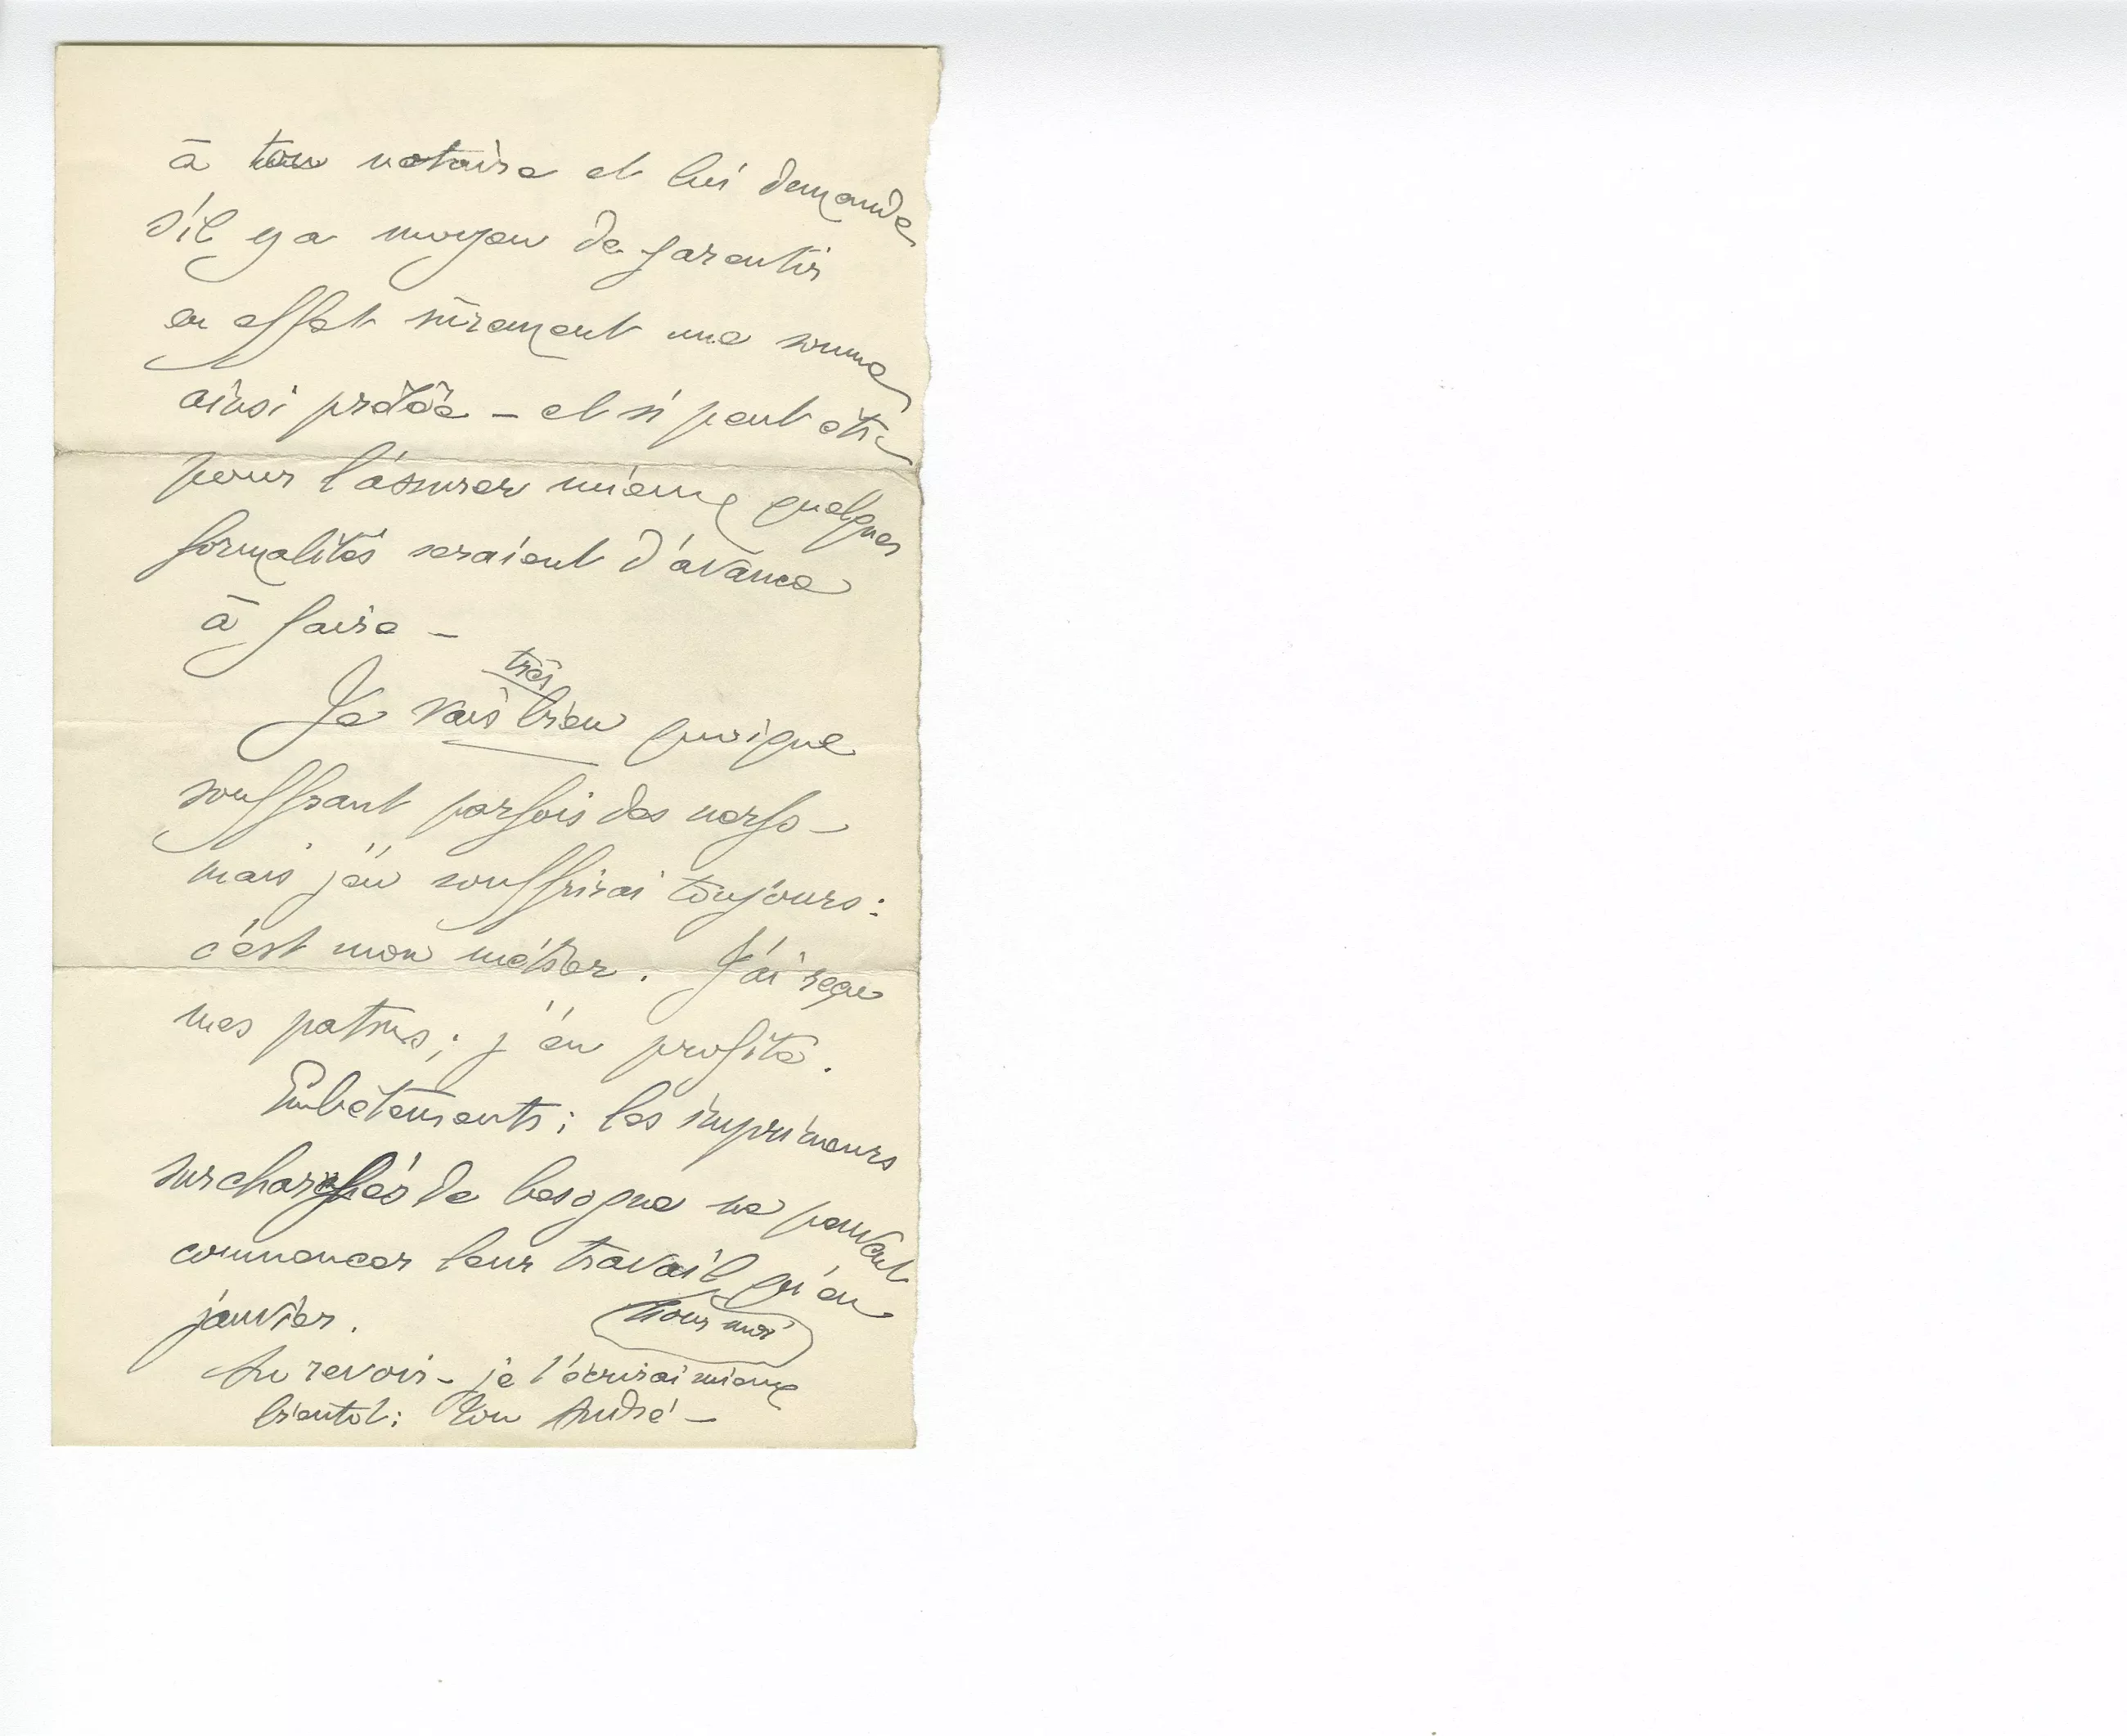 à ton notaire et lui demande
s'il y a moyen de garentir
en effet sûrement une somme
ainsi prêtée – et si peut être
pour l'assurer mieux quelques
formalités seraient d'avance
à faire –
très
Je vais bien quoique
souffrant parfois des nerfs –
mais j'en souffrirai toujours :
c'est mon métier. J'ai reçu
mes patins ; j'en profite.
Embêtements ; les imprimeurs
surchargés de besogne ne peuvent
commencer leur travail qu'en
janvier.
Au revoir – je t'écrirai mieux
bientot : ton André –